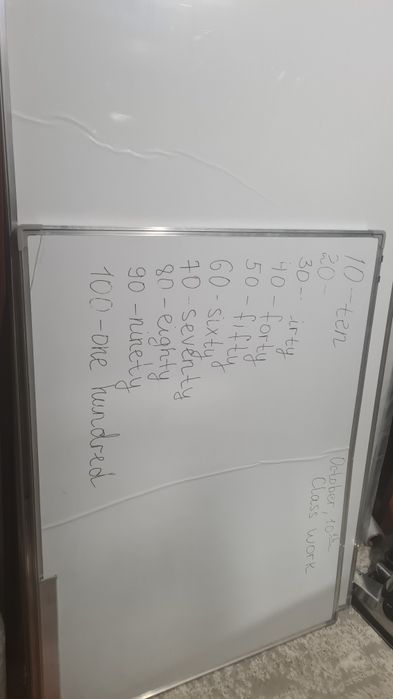 October, 10th
Class work
10-ten
20-
30- irty
40-forty
50-fifty
60-sixty
70-seventy
80-eighty
90-ninety
100-one hundred